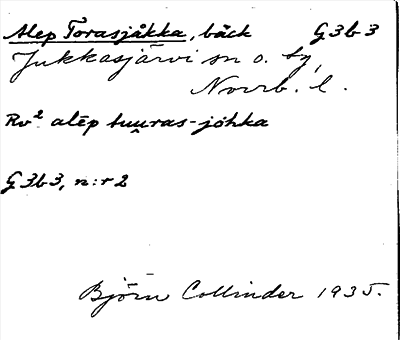 Alep Torasjåkka, bäck G3b3
Jukkasjärvi sn o. by,
Norrb. l.
Rv² alēp tuu̯ras-jȯhka
G3b3, n:r 2
Björn Collinder 1935.